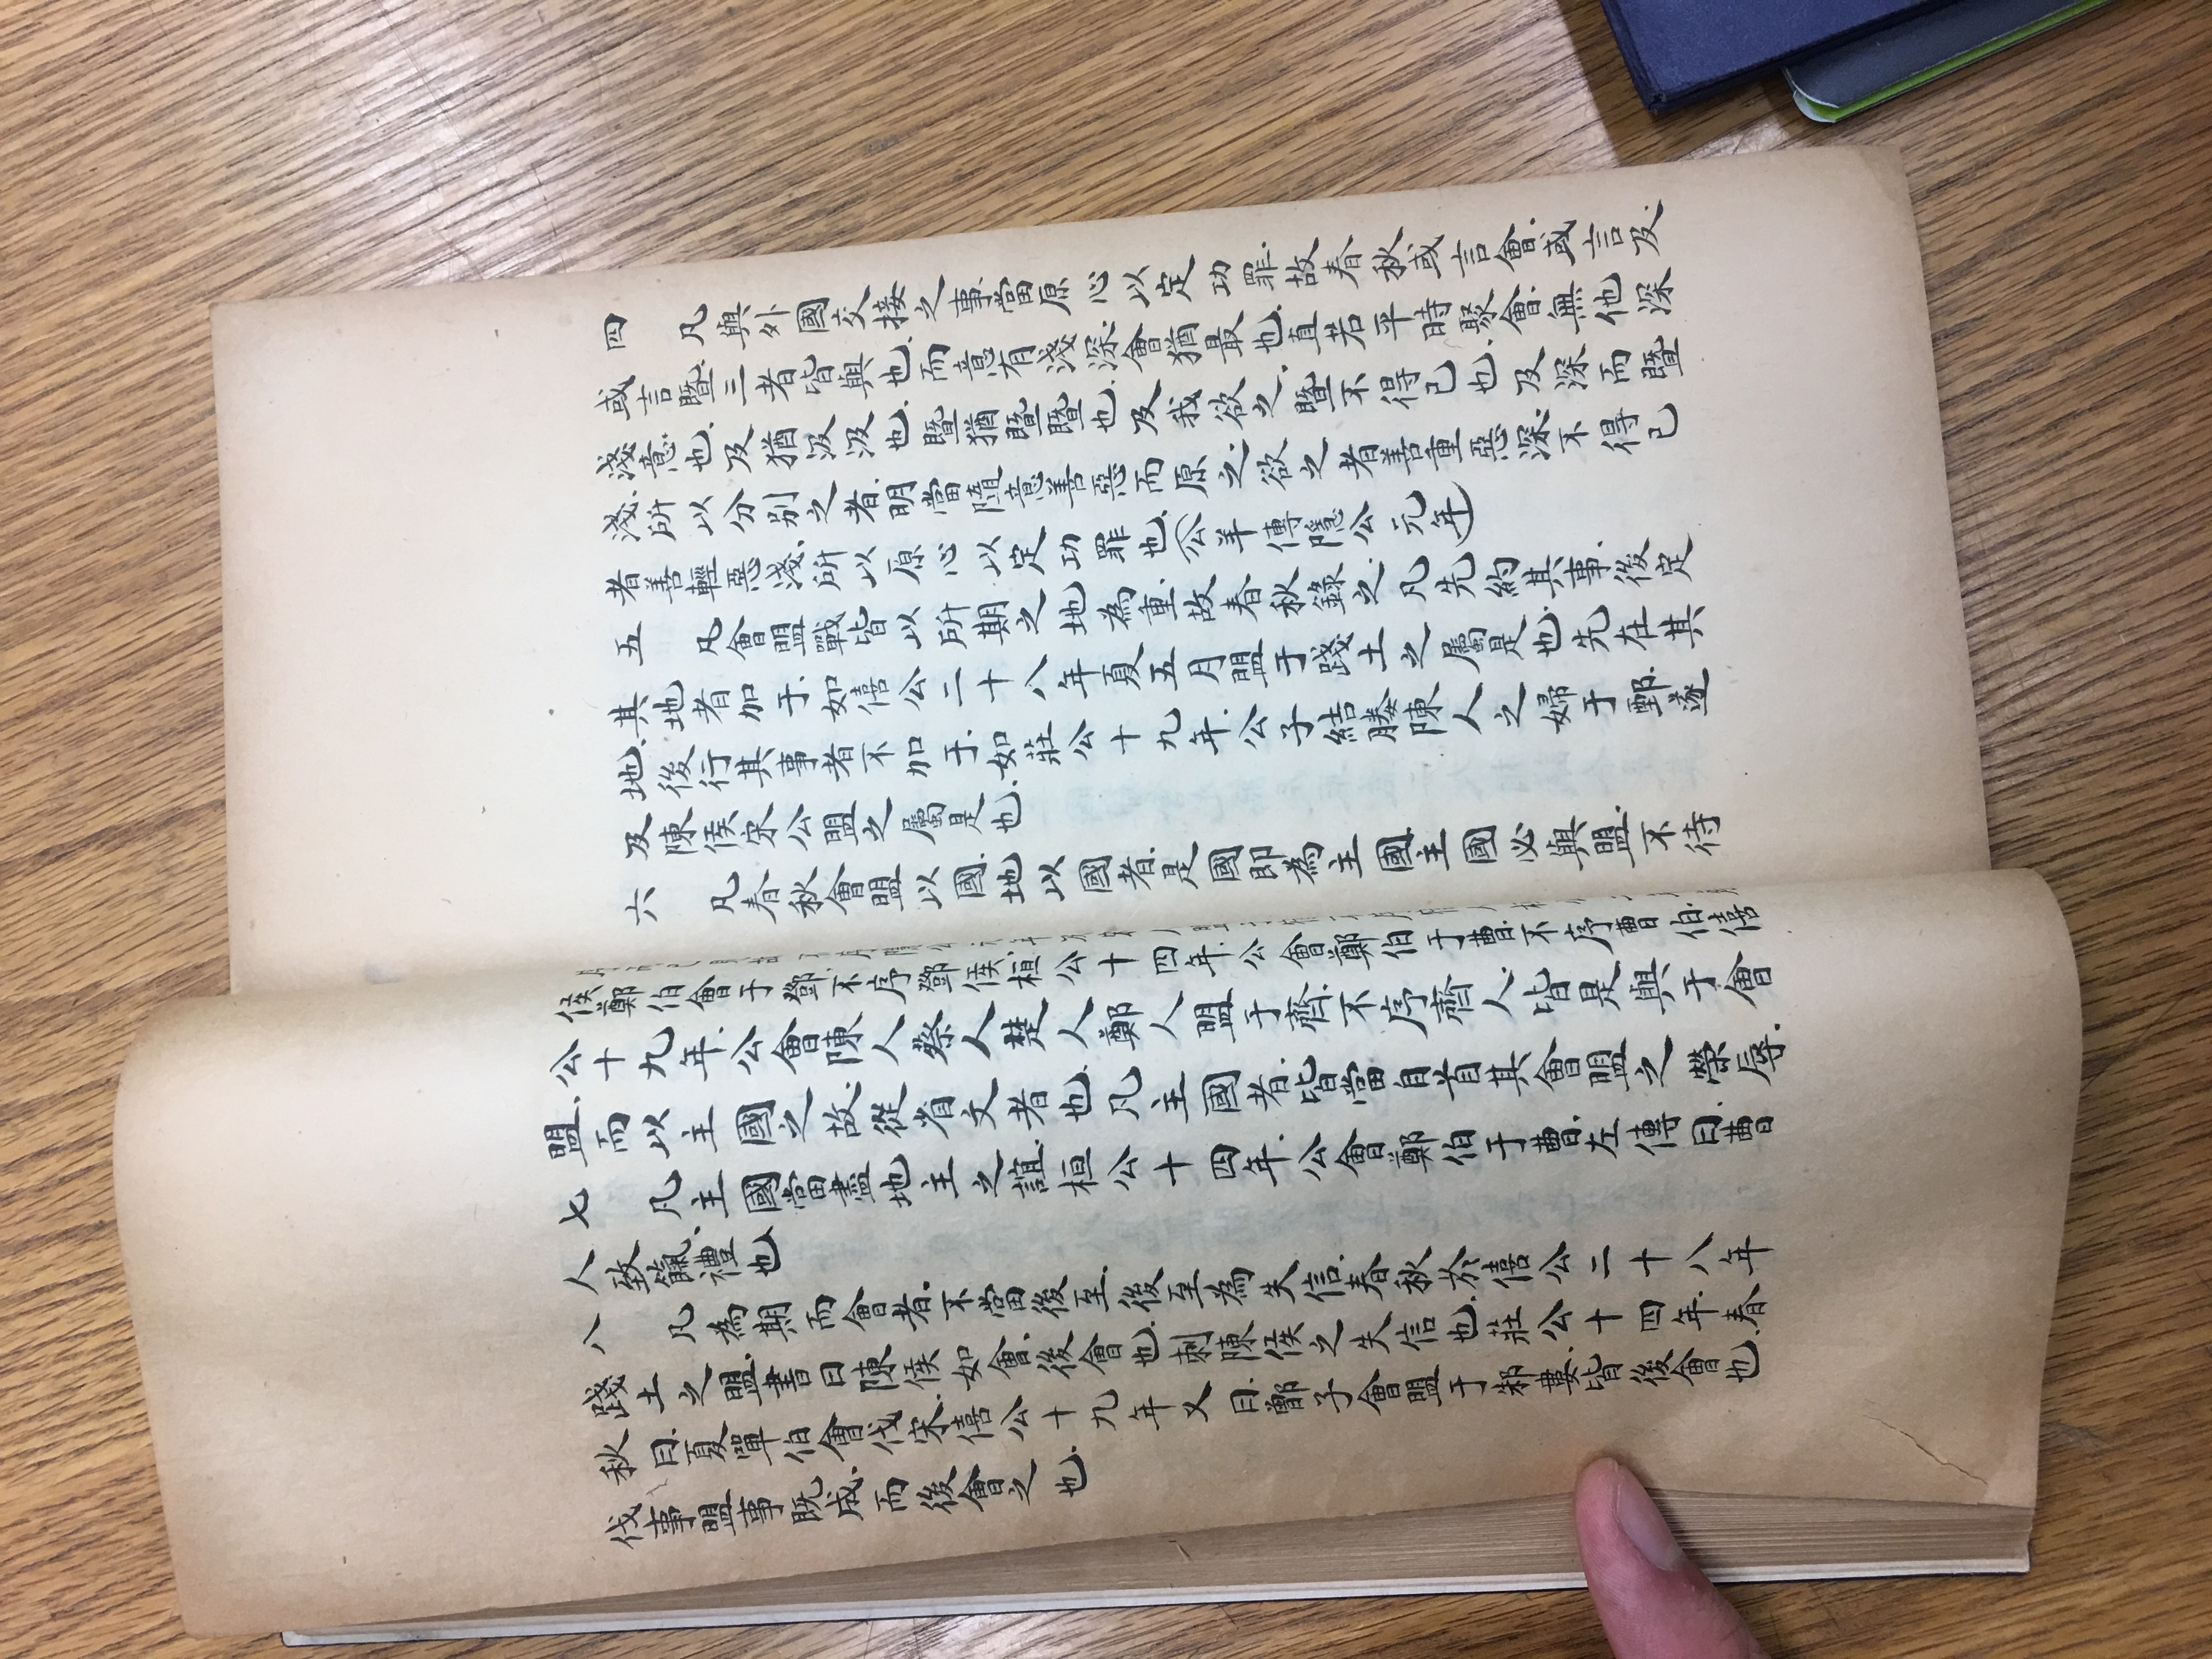 四　凡與外國交接之事.當原心以定功罪.故春秋或言會.或言及.
或言暨.三者皆與也.而意有淺深.會猶最也.直若平時聚會.無他深
淺意也.及猶汲汲也.暨猶暨暨也.及我欲之.暨不得已也.及深而暨
淺.所以分別之者.明當隨意善惡而原之.欲之者善重惡深.不得已
者善輕惡淺.所以原心以定功罪也.(公羊傳隱公元年)
五　凡會盟戰皆以所期之地為重.故春秋錄之.凡先約其事.後定
其地者加于.如僖公二十八年夏五月盟于踐土之屬是也.先在其
地.後行其事者不加于.如莊公十九年.公子結媵陳人之婦于鄄.遂
及陳侯宋公盟之屬是也.
六　凡春秋會盟以國地.以國者.是國即為主國.主國必與盟.不待
侯鄭伯會于鄧.不序鄧侯.桓公十四年.公會鄭伯于曹.不序曹伯.僖
公十九年.公會陳人蔡人楚人鄭人盟于齊.不序齊人.皆是與于會
盟.而以主國之故.從省文者也.凡主國者.皆當自首其會盟之榮辱.
七　凡主國當盡地主之誼.桓公十四年.公會鄭伯于曹.左傳曰曹
人致餼.禮也
八　凡為期而會者.不當後至.後至為失信.春秋於僖公二十八年
踐土之盟.書曰陳侯如會.後會也.刺陳侯之失信也.莊公十四年.春
秋曰.夏單伯會伐宋.僖公十九年又曰.鄫子會盟于邾婁.皆後會也.
伐事盟事既成.而後會之也.